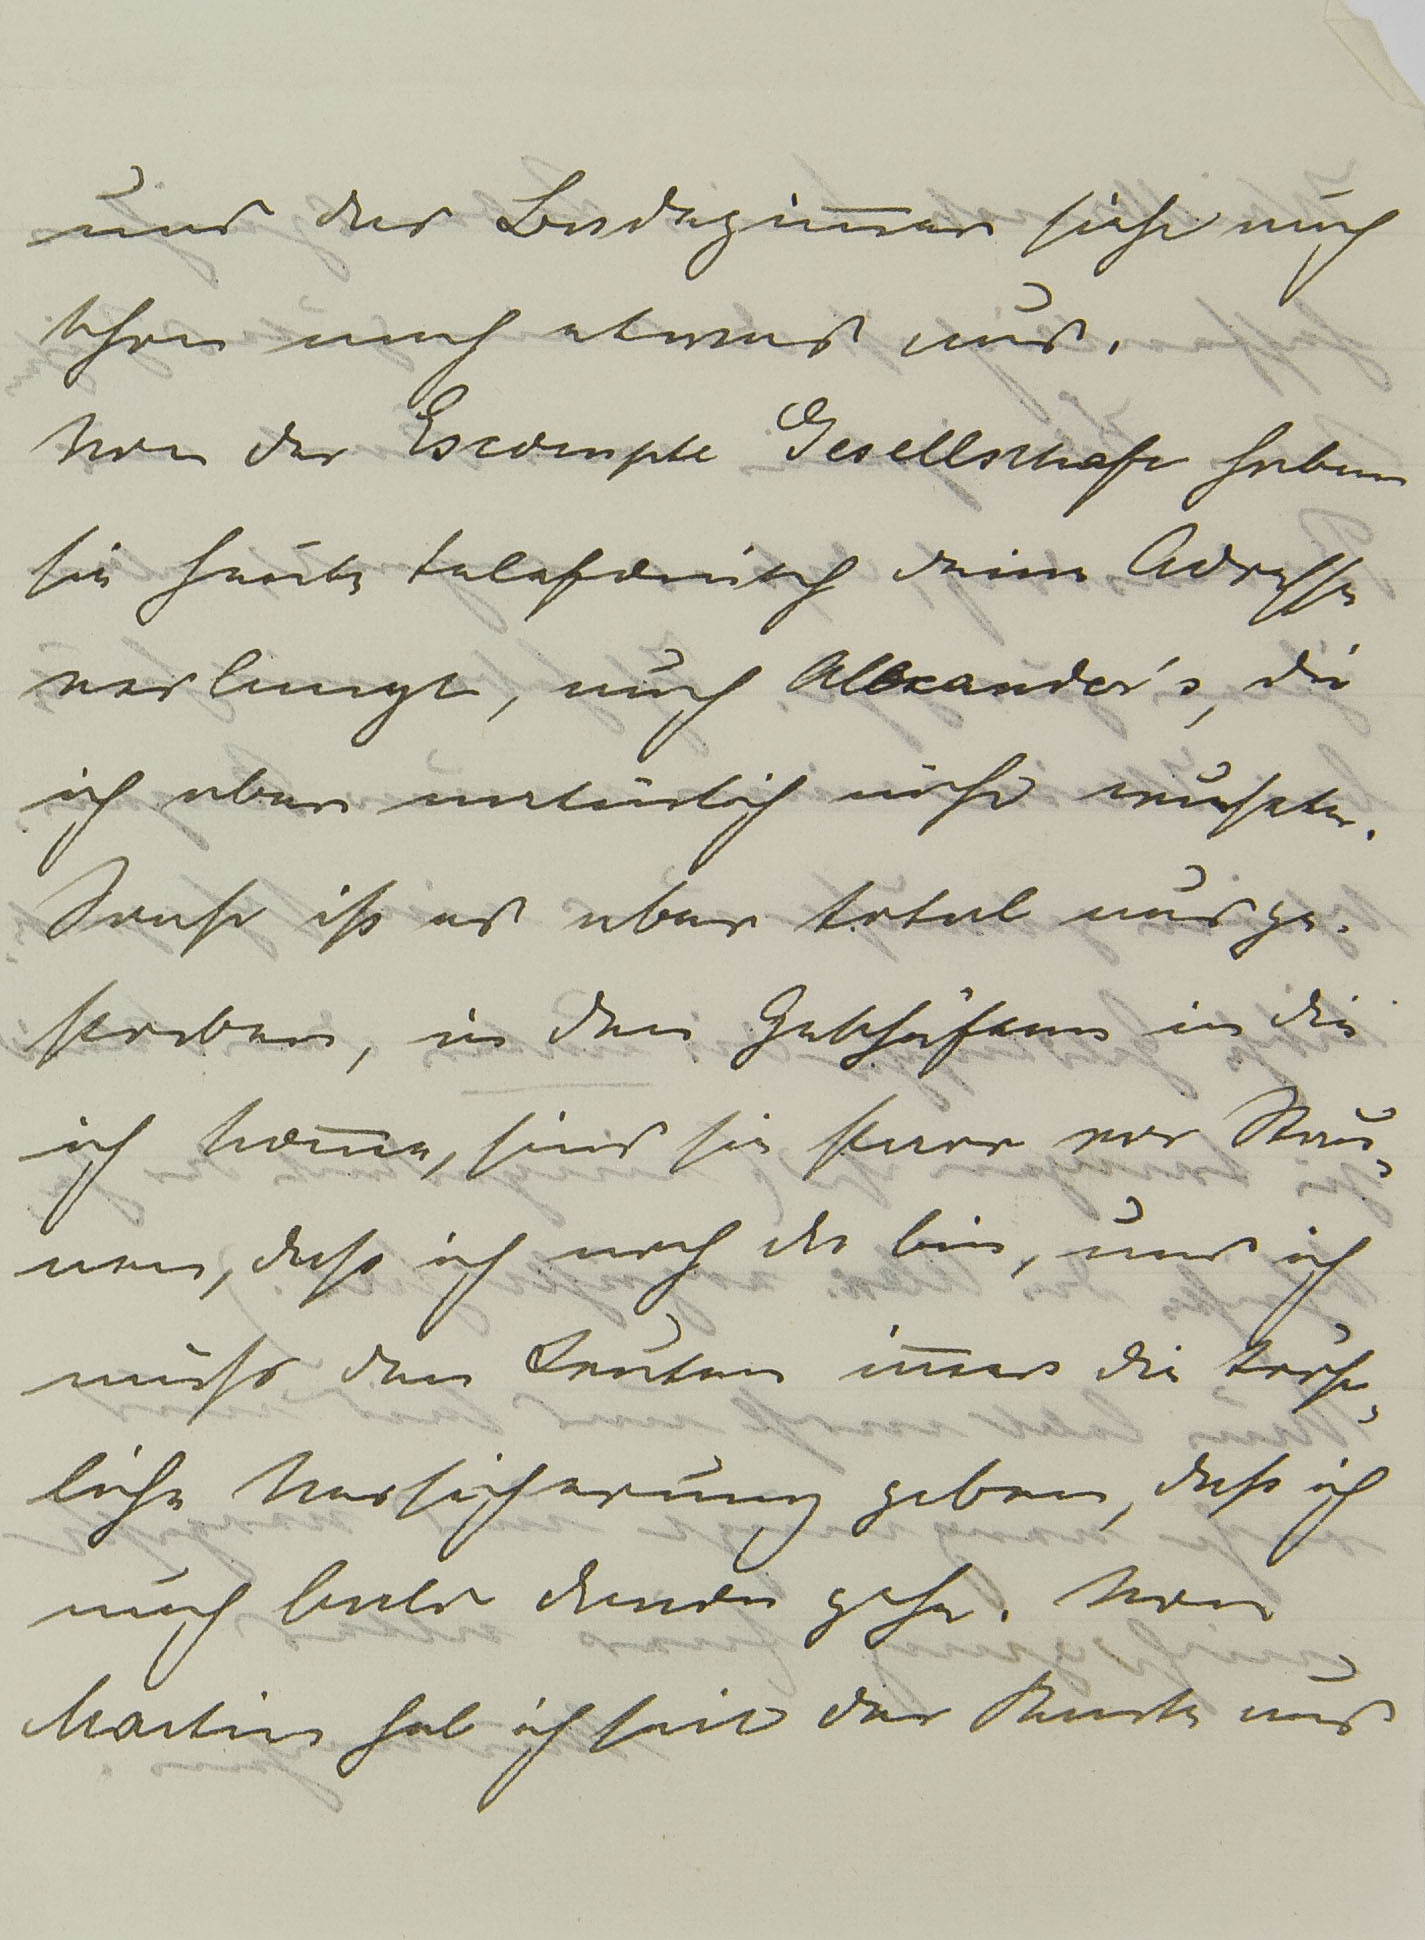 und das Badezimmer sieht auch
schon nach etwas aus.
Von der Escompte Gesellschaft haben
sie heute telefonisch deine Adresse
verlangt, auch Alexander's, die
ich aber natürlich nicht wußte.
Sonst ist es aber total ausge-
storben, in den Geschäften in die
ich komme, sind sie starr vor Stau-
nen, daß ich noch da bin, und ich
muß den Leuten immer die tröst-
liche Versicherung geben, daß ich
auch bald davon gehe. Von
Martin hab ich seit der Karte aus